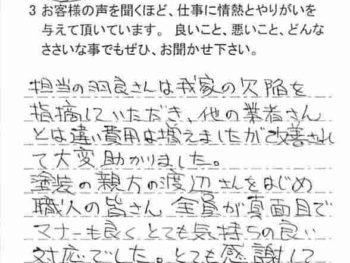 3 お客様の声を聞くほど、仕事に情熱とやりがいを
与えて頂いています。良いこと、悪いこと、どんな
ささいな事でもぜひ、お聞かせ下さい。
担当の羽良さんは我家の欠陥を
指摘していただき、他の業者さん
とは違い費用は増えましたが改善され
て大変助かりました。
塗装の親方の渡辺さんをはじめ
職人の皆さん 全員が真面目で
マナーも良くとても気持ちの良い
対応でした。とても感謝して